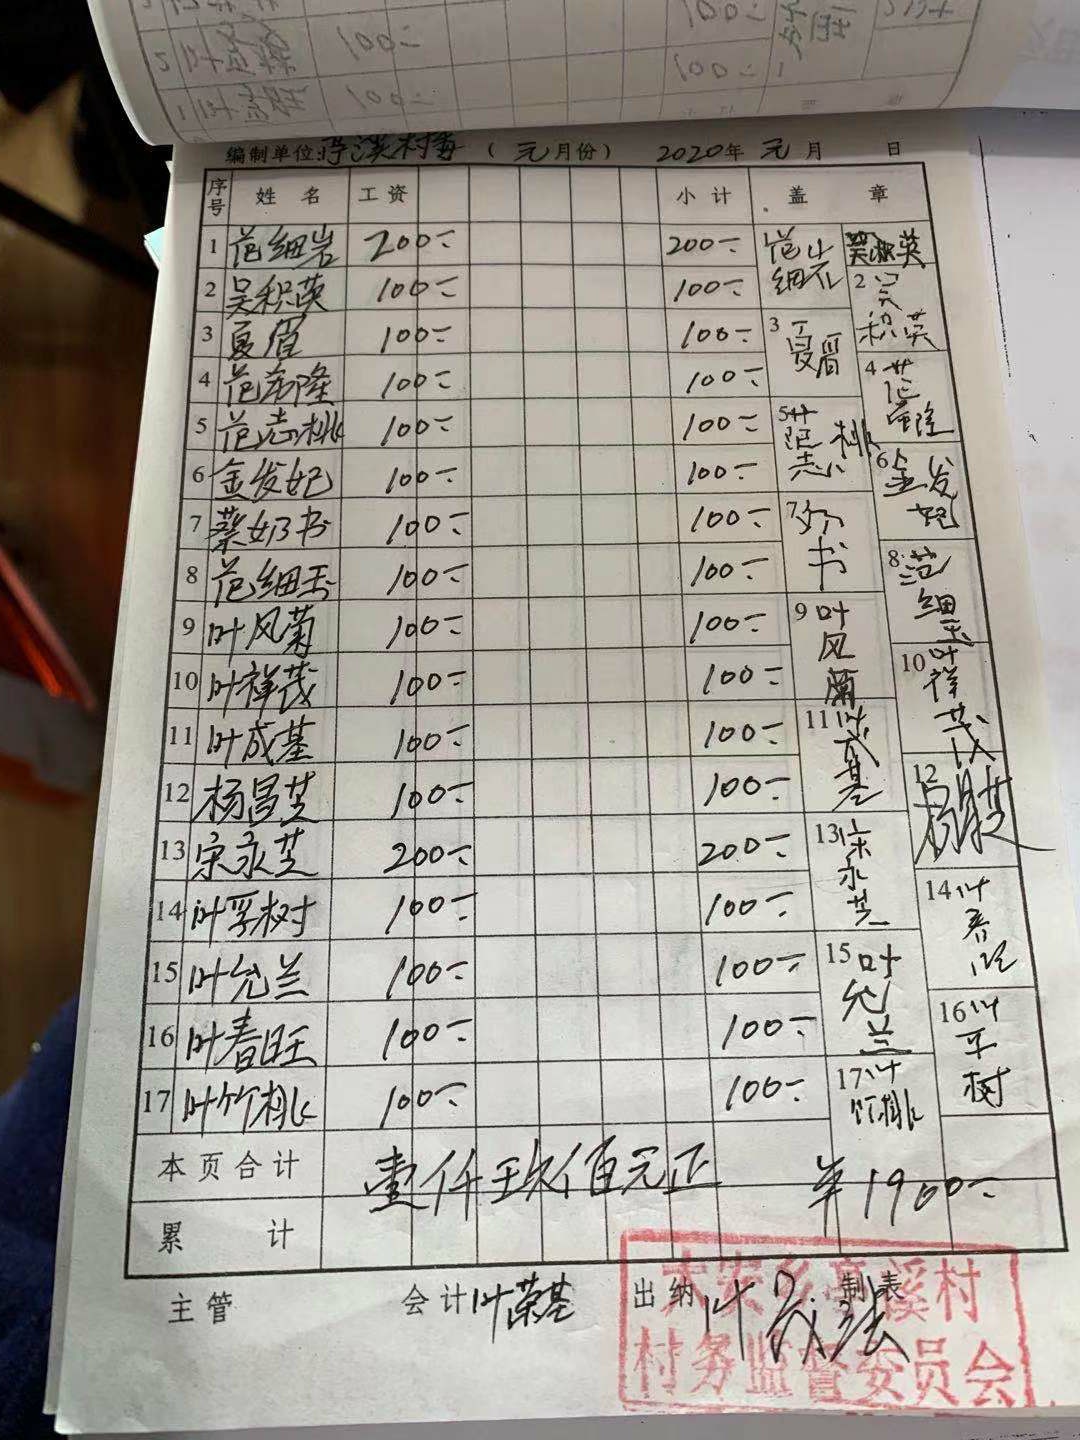 编制单位 （元月份） 2020年 元月 日
序号 姓名 工资 小计 盖章
1 范细岩 200 200 范细岩 吴积英
2 吴积英 100 100 2 吴积英
3 夏眉 100 100 3 夏眉
4 范希隆 100 100 4 范希隆
5 范志桃 100 100 5 范志桃
6 金发妃 100 100 6 金发妃
7 蔡奶书 100 100 7 奶书
8 范细玉 100 100 8 范细玉
9 叶风菊 100 100 9 叶风菊
10 叶祥茂 100 100 10 叶祥茂
11 叶成基 100 100 11 叶成基
12 杨昌芝 100 100 12 杨昌芝
13 宋永芝 200 200 13 宋永芝
14 叶孚树 100 100 14 叶春旺
15 叶允兰 100 100 15 叶允兰
16 叶春旺 100 100 16 叶孚树
17 叶竹桃 100 100 17 叶竹桃
本页合计 壹仟玖佰元正 ¥1900
累计
主管 会计 叶荣基 出纳 制表
溪村
村务监督委员会